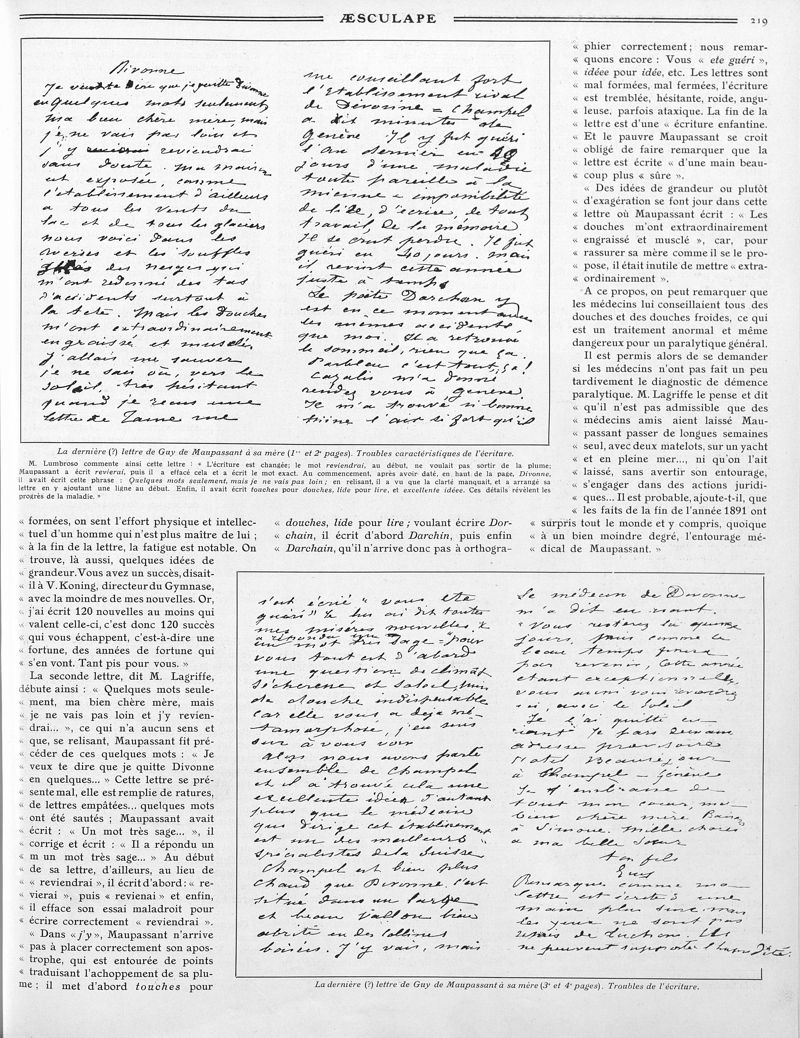 ÆSCULAPE
219
Divonne
Je veux te dire que je quitte Divonne
en quelques mots seulement
ma bien chère mère, mais
je ne vais pas loin et
j'y reviendrai
sans doute. Ma maison
est exposée, comme
l'établissement d'ailleurs
a tous les vents du
lac et de tous les glaciers
nous voici dans les
averses et les souffles
des neiges qui
m'ont redonné des tas
d'accidents surtout à
la tete. Mais les douches
m'ont extraordinairement
engraissé et musclé
j'allais me sauver
je ne sais où, vers le
soleil. Très hésitant
quand je reçus une
lettre de Taine me
me conseillant fort
l'Etablissement rival
de Divonne = Champel
a dit minutes de
Genève. Il y fut guéri
l'an dernier en 40
jours d'une maladie
toute pareille à la
mienne = impossibilité
de lide, d'écrire, de tout
travail, de la mémoire
Il se crut perdu. Il fut
guéri en 40 jours. Mais
il revint cette année
juste à temps
Le poète Darchan y
est en ce moment
les memes accidents
que moi. Il a retrouvé
le sommeil, rien que ça.
Parbleu c'est tout, ça!
Cazalis m'a donné
rendez vous à Genève.
Il m'a trouvé si bonne
mine l'air si fort qu'il
La dernière (?) lettre de Guy de Maupassant à sa mère (1re et 2e pages). Troubles caractéristiques de l'écriture.
M. Lumbroso commente ainsi cette lettre : « L'écriture est changée; le mot reviendrai, au début, ne voulait pas sortir de la plume;
Maupassant a écrit revierai, puis il a effacé cela et a écrit le mot exact. Au commencement, après avoir daté, en haut de la page, Divonne,
il avait écrit cette phrase : Quelques mots seulement, mais je ne vais pas loin; en relisant, il a vu que la clarté manquait, et a arrangé sa
lettre en y ajoutant une ligne au début. Enfin, il avait écrit touches pour douches, lide pour lire, et excellente idéee. Ces détails révèlent les
progrès de la maladie. »
« formées, on sent l'effort physique et intellec-
« tuel d'un homme qui n'est plus maître de lui ;
« à la fin de la lettre, la fatigue est notable. On
« trouve, là aussi, quelques idées de
« grandeur. Vous avez un succès, disait-
« il à V. Koning, directeur du Gymnase,
« avec la moindre de mes nouvelles. Or,
« j'ai écrit 120 nouvelles au moins qui
« valent celle-ci, c'est donc 120 succès
« qui vous échappent, c'est-à-dire une
« fortune, des années de fortune qui
« s'en vont. Tant pis pour vous. »
La seconde lettre, dit M. Lagriffe,
débute ainsi : « Quelques mots seule-
« ment, ma bien chère mère, mais
« je ne vais pas loin et j'y revien-
« drai... », ce qui n'a aucun sens et
« que, se relisant, Maupassant fit pré-
« céder de ces quelques mots : « Je
« veux te dire que je quitte Divonne
« en quelques... » Cette lettre se pré-
« sente mal, elle est remplie de ratures,
« de lettres empâtées... quelques mots
« ont été sautés ; Maupassant avait
« écrit : « Un mot très sage... », il
« corrige et écrit : « Il a répondu un
« m un mot très sage... » Au début
« de sa lettre, d'ailleurs, au lieu de
« « reviendrai », il écrit d'abord : « re-
« vierai », puis « revienai » et enfin,
« il efface son essai maladroit pour
« écrire correctement « reviendrai ».
« Dans « j'y », Maupassant n'arrive
« pas à placer correctement son apos-
« trophe, qui est entourée de points
« traduisant l'achoppement de sa plu-
« me ; il met d'abord touches pour
« douches, lide pour lire ; voulant écrire Dor-
« chain, il écrit d'abord Darchin, puis enfin
« Darchain, qu'il n'arrive donc pas à orthogra-
« phier correctement ; nous remar-
« quons encore : Vous « ete guéri »,
« idéee pour idée, etc. Les lettres sont
« mal formées, mal fermées, l'écriture
« est tremblée, hésitante, roide, angu-
« leuse, parfois ataxique. La fin de la
« lettre est d'une « écriture enfantine.
« Et le pauvre Maupassant se croit
« obligé de faire remarquer que la
« lettre est écrite « d'une main beau-
« coup plus « sûre ».
« Des idées de grandeur ou plutôt
« d'exagération se font jour dans cette
« lettre où Maupassant écrit : « Les
« douches m'ont extraordinairement
« engraissé et musclé », car, pour
« rassurer sa mère comme il se le pro-
« pose, il était inutile de mettre « extra-
« ordinairement ».
A ce propos, on peut remarquer que
les médecins lui conseillaient tous des
douches et des douches froides, ce qui
est un traitement anormal et même
dangereux pour un paralytique général.
Il est permis alors de se demander
si les médecins n'ont pas fait un peu
tardivement le diagnostic de démence
paralytique. M. Lagriffe le pense et dit
« qu'il n'est pas admissible que des
« médecins amis aient laissé Mau-
« passant passer de longues semaines
« seul, avec deux matelots, sur un yacht
« et en pleine mer..., ni qu'on l'ait
« laissé, sans avertir son entourage,
« s'engager dans des actions juridi-
« ques... Il est probable, ajoute-t-il, que
« les faits de la fin de l'année 1891 ont
« surpris tout le monde et y compris, quoique
« à un bien moindre degré, l'entourage mé-
« dical de Maupassant. »
s'est écrié « vous ete
guéri » Je lui ai dit toutes
mes misères nouvelles. Il
a répondu un
un mot très sage = pour
vous tout est d'abord
une question de climat
sécheresse et soleil, puis
de douche indispensable
car elle vous a deja mé-
tamorphosé, j'en suis
sur à vous voir
Alors nous avons parlé
ensemble de Champel
et il a trouvé cela une
excellente idéee d'autant
plus que le médecin
qui dirige cet établissement
est un des meilleurs
spécialistes de la Suisse
Champel est bien plus
chaud que Divonne. C'est
situé dans un large
et beau vallon bien
abrité en des collines
boisées. J'y vais, mais
Le médecin de Divonne
m'a dit en riant.
« Vous resterez là quinze
jours. Puis comme le
beau temps finira
par revenir, cette année
étant exceptionnelle,
vous
ici, avec le soleil
Je l'ai quitté en
riant. Je pars demain
adresse provisoire
Hotel Beausejour
à Champel - Genève
Je t'embrasse de
tout mon coeur, ma
bien chère mère Baisers
à Simone. Mille choses
a ma belle soeur
ton fils
Guy
Remarques comme ma
lettre est écrite d'une
main plus sure, mais
les yeux ne sont pas
remis de l'action. Ils
ne peuvent supporter l'humidité.
La dernière (?) lettre de Guy de Maupassant à sa mère (3e et 4e pages). Troubles de l'écriture.